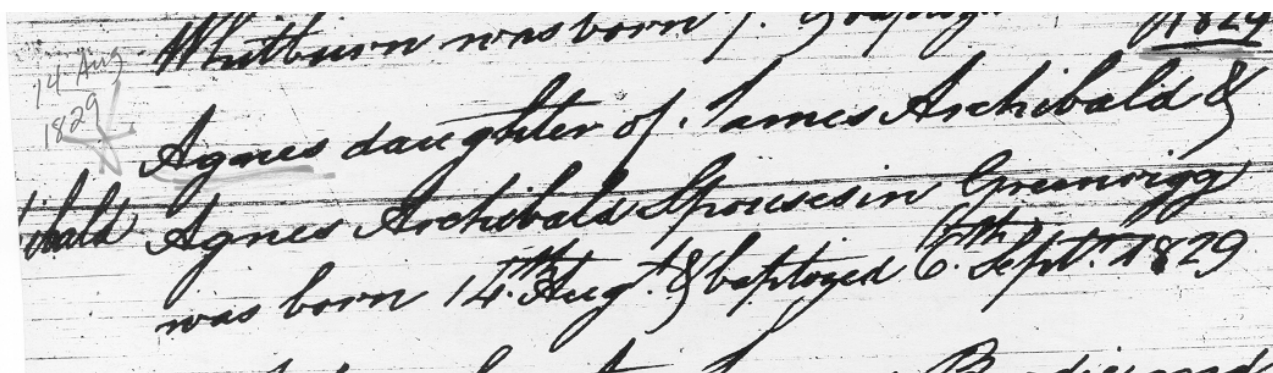 Whitburn was born
1829
14 Aug
1829
Agnes daughter of James Archibald &
ibald Agnes Archibald Spouses in Greenrigg
was born 14.th Aug.t & baptized 6.th Sept.r 1829